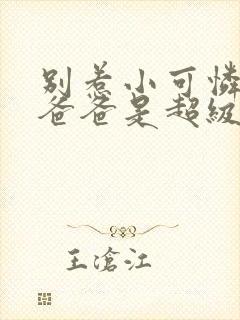 别惹小可憐
爸爸是超級
王滄江